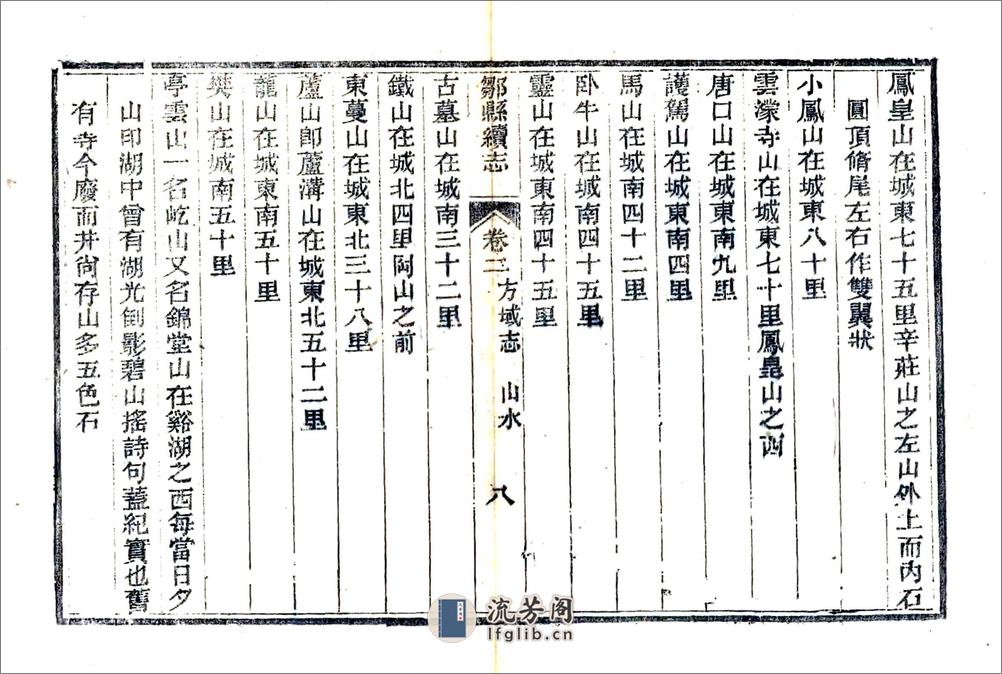 鳳皇山在城東七十五里辛莊山之左山外土而內石
圓頂脩尾左右作雙翼狀
小鳳山在城東八十里
雲濛寺山在城東七十里鳳皇山之西
唐口山在城東南九里
護駕山在城東南四里
馬山在城南四十二里
臥牛山在城南四十五里
靈山在城東南四十五里
鄒縣續志
卷二
方域志
山水
八
古墓山在城南三十二里
鐵山在城北四里岡山之前
東蔓山在城東北三十八里
蘆山卽蘆溝山在城東北五十二里
龍山在城東南五十里
樊山在城南五十里
亭雲山一名屹山又名錦堂山在谿湖之西每當日夕
山印湖中曾有湖光倒影碧山搖詩句蓋紀實也舊
有寺今廢而井尙存山多五色石
流芳阁
lfglib.cn